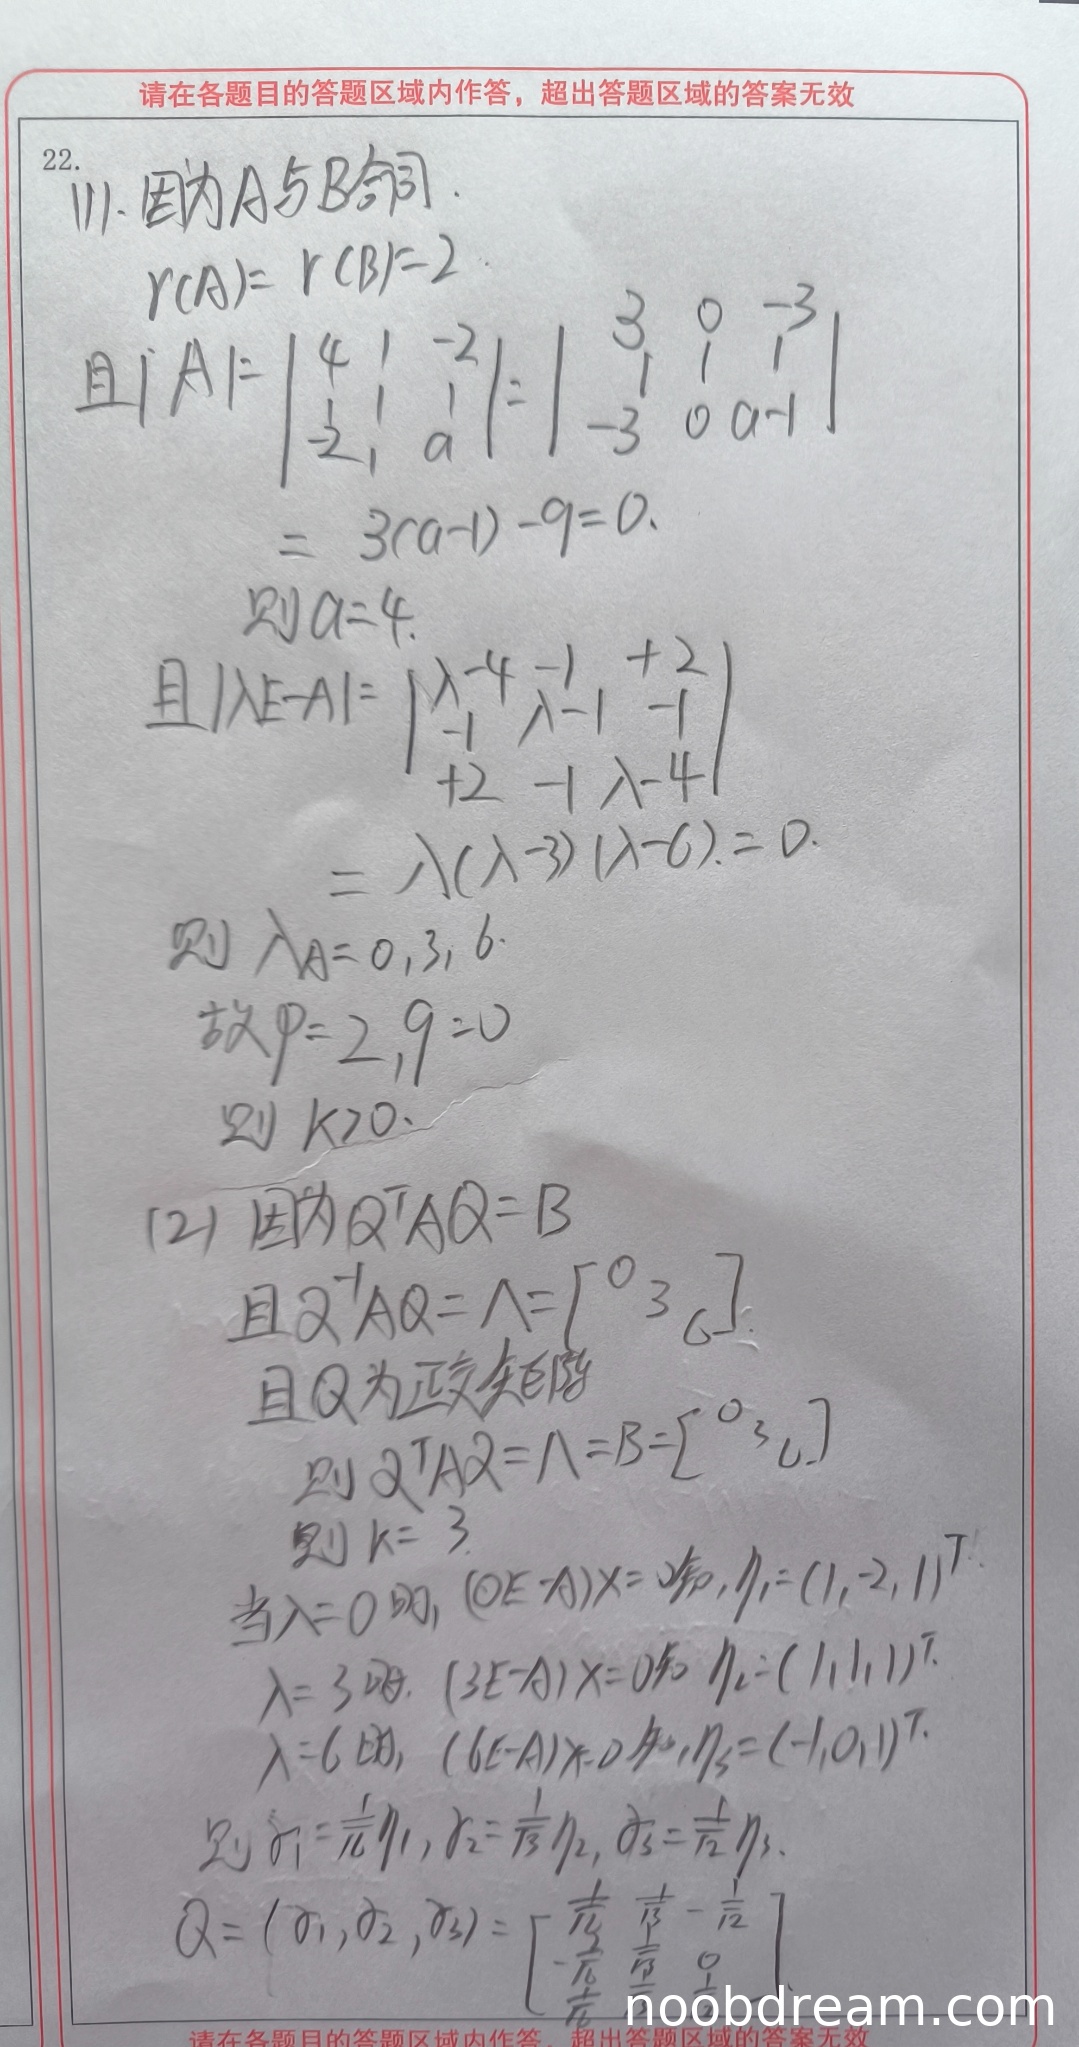 请在各题目的答题区域内作答，超出答题区域的答案无效
22.
(1). 因为A与B合同.
r(A)= r(B)=2.
且|A|= |4 1 -2| = |3 0 -3|
|1 1 1| |1 1 1|
|-2 1 a| |-3 0 a-1|
= 3(a-1)-9=0.
则 a=4.
且|λE-A|= |λ-4 -1 +2|
|-1 λ-1 -1|
|+2 -1 λ-4|
= λ(λ-3)(λ-6).=0.
则 λA=0,3,6.
故p=2,q=0
则 k>0.
(2) 因为QᵀAQ=B
且Q⁻¹AQ=Λ=[0 3 6].
且Q为正交矩阵
则 QᵀAQ=Λ=B=[0 3 6]
则 k=3.
当λ=0时, (0E-A)x=0知, η₁=(1,-2,1)ᵀ.
λ=3时. (3E-A)x=0知 η₂=(1,1,1)ᵀ.
λ=6时, (6E-A)x=0知, η₃=(-1,0,1)ᵀ.
则 γ₁=1/√6 η₁, γ₂=1/√3 η₂, γ₃=1/√2 η₃.
Q=(γ₁,γ₂,γ₃)= [1/√6 1/√3 -1/√2]
[-2/√6 1/√3 0]
[1/√6 1/√3 1/√2].
noobdream.com
请在各题目的答题区域内作答，超出答题区域的答案无效